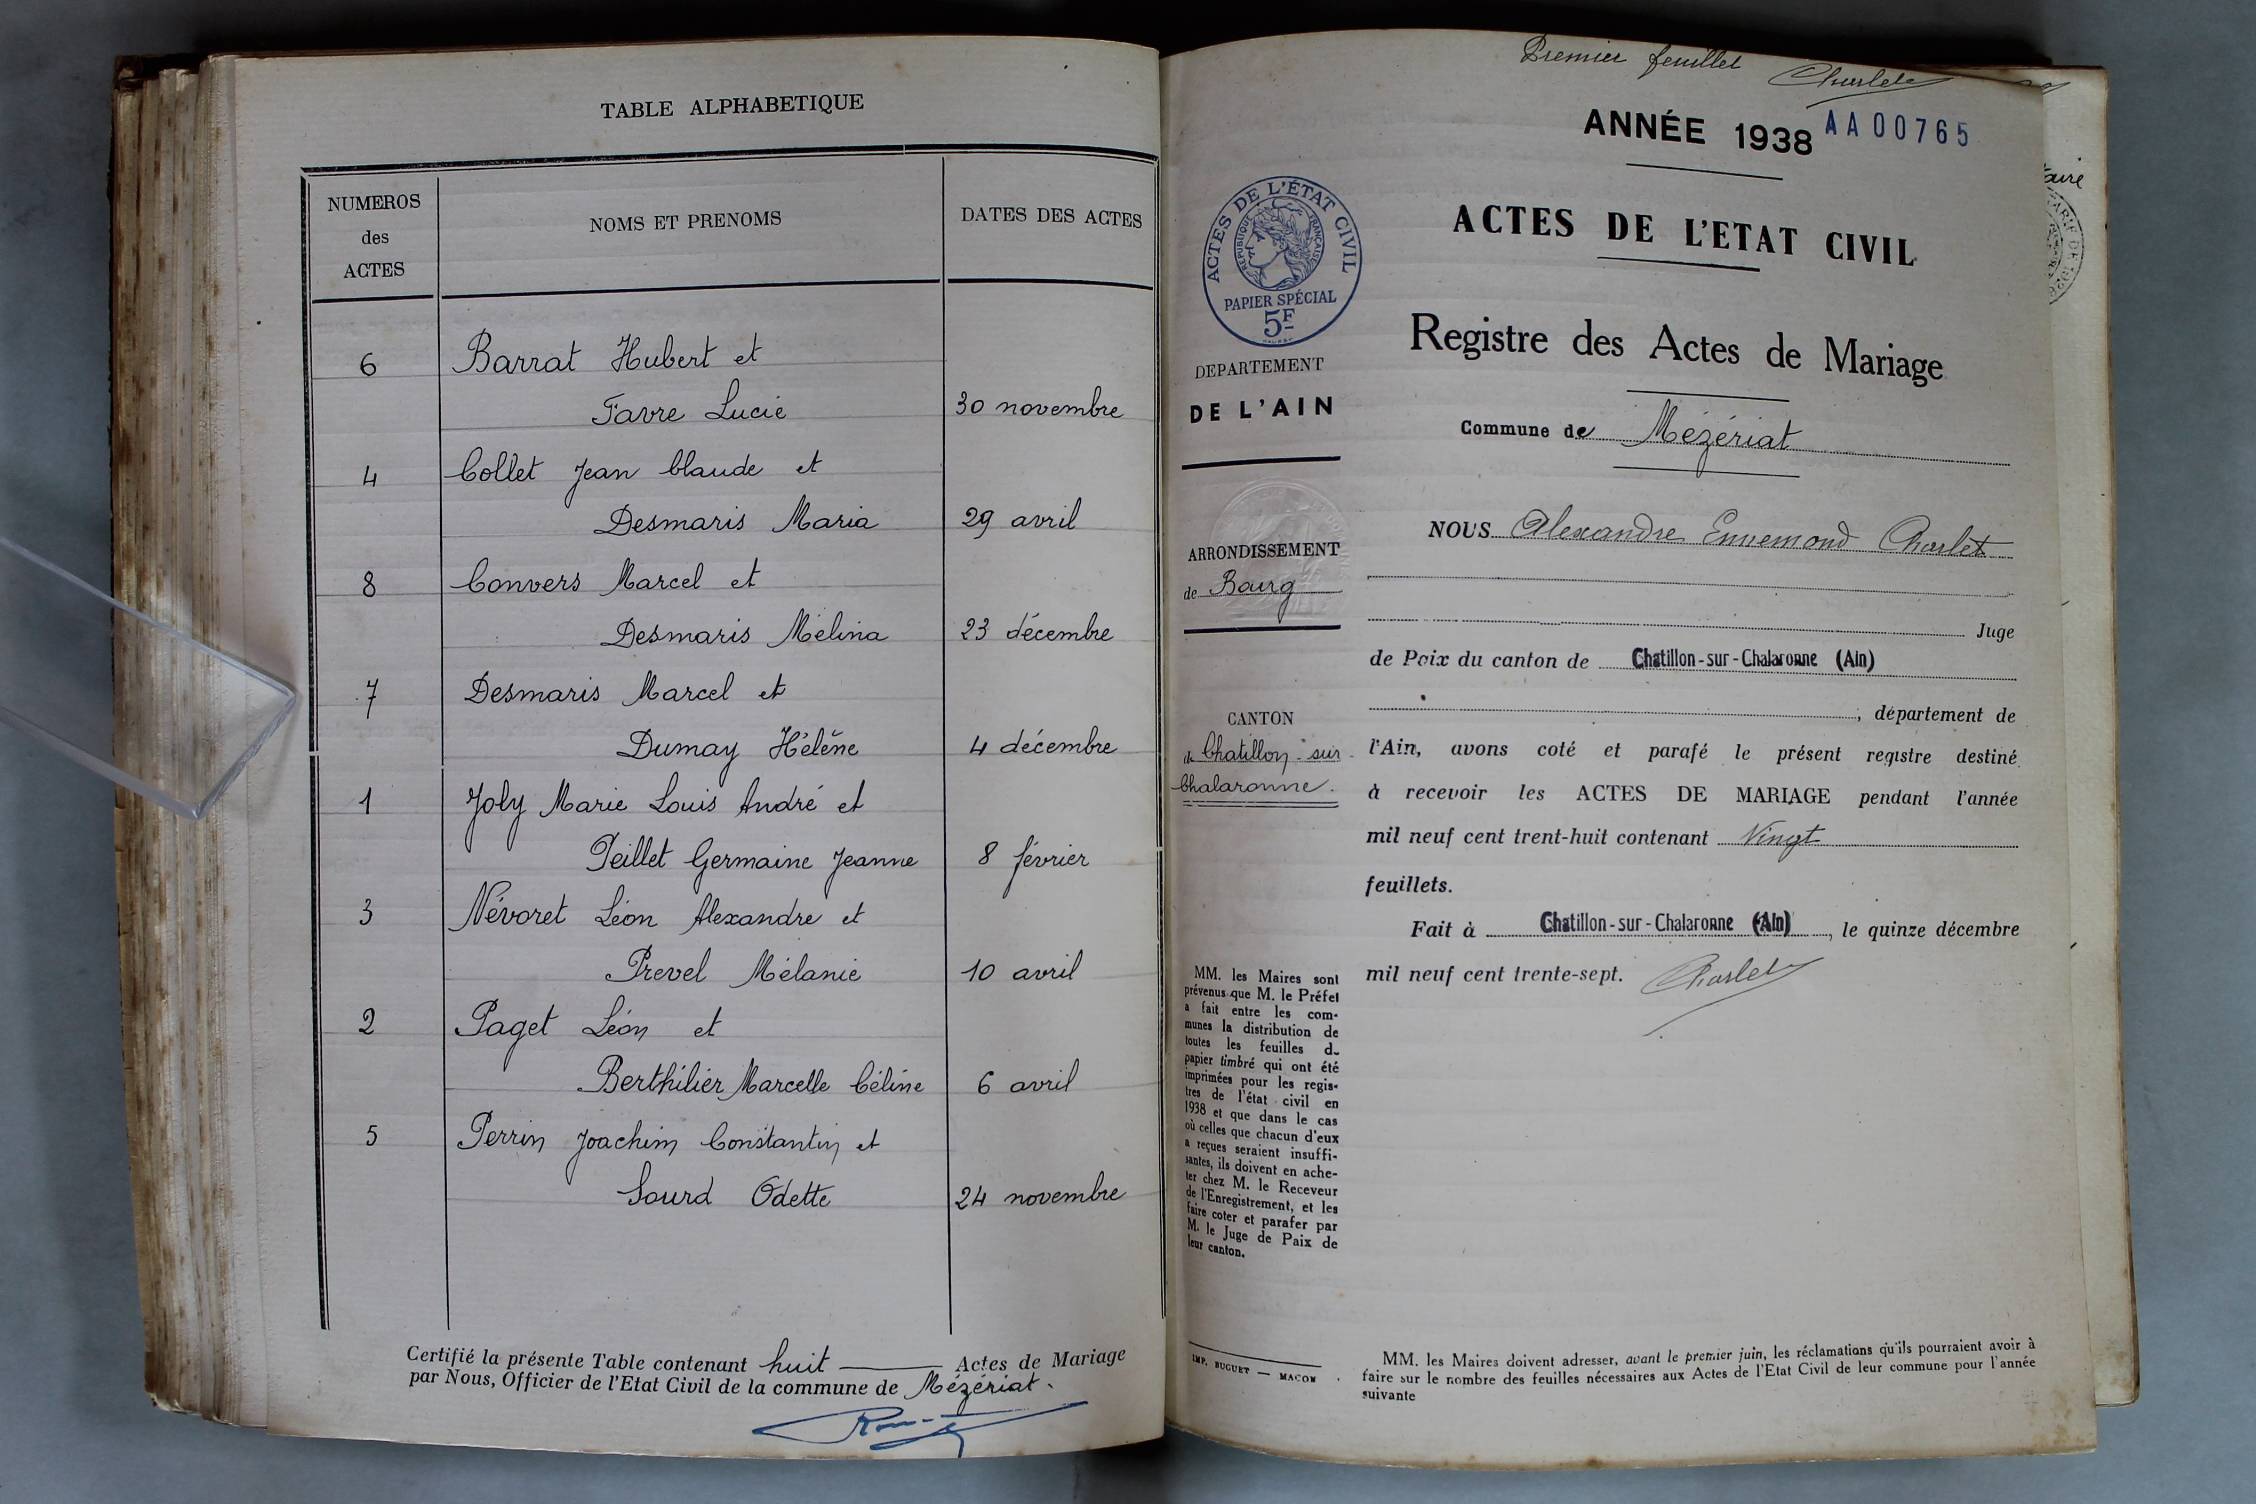 TABLE ALPHABETIQUE
NUMEROS
des
ACTES
NOMS ET PRENOMS
DATES DES ACTES
6 Barrat Hubert et
Favre Lucie 30 novembre
4 Collet Jean Claude et
Desmaris Maria 29 avril
8 Convers Marcel et
Desmaris Mélina 23 décembre
7 Desmaris Marcel et
Dumay Hélène 4 décembre
1 Joly Marie Louis André et
Peillet Germaine Jeanne 8 février
3 Névoret Léon Alexandre et
Prevel Mélanie 10 avril
2 Paget Léon et
Berthilier Marcelle Céline 6 avril
5 Perrin Joachim Constantin et
Sourd Odette 24 novembre
Certifié la présente Table contenant huit Actes de Mariage
par Nous, Officier de l'Etat Civil de la commune de Mézériat.
Premier feuillet
Charlet
ANNÉE 1938 AA00765
ACTES DE L'ÉTAT CIVIL
RÉPUBLIQUE FRANÇAISE
PAPIER SPÉCIAL
5F
ACTES DE L'ETAT CIVIL
Registre des Actes de Mariage
DEPARTEMENT
DE L'AIN
Commune de Mézériat
ARRONDISSEMENT
de Bourg
CANTON
de Chatillon-sur-
Chalaronne.
NOUS Alexandre Ennemond Charlet
Juge
de Paix du canton de Chatillon-sur-Chalaronne (Ain)
, département de
l'Ain, avons coté et parafé le présent registre destiné
à recevoir les ACTES DE MARIAGE pendant l'année
mil neuf cent trent-huit contenant Vingt
feuillets.
Fait à Chatillon-sur-Chalaronne (Ain), le quinze décembre
mil neuf cent trente-sept. Charlet
MM. les Maires sont
prévenus que M. le Préfet
a fait entre les com-
munes la distribution de
toutes les feuilles d
papier timbré qui ont été
imprimées pour les regis-
tres de l'état civil en
1938 et que dans le cas
où celles que chacun d'eux
a reçues seraient insuffi-
santes, ils doivent en ache-
ter chez M. le Receveur
de l'Enregistrement, et les
faire coter et parafer par
M. le Juge de Paix de
leur canton.
IMP. BUGUET — MACON
MM. les Maires doivent adresser, avant le premier juin, les réclamations qu'ils pourraient avoir à
faire sur le nombre des feuilles nécessaires aux Actes de l'Etat Civil de leur commune pour l'année
suivante